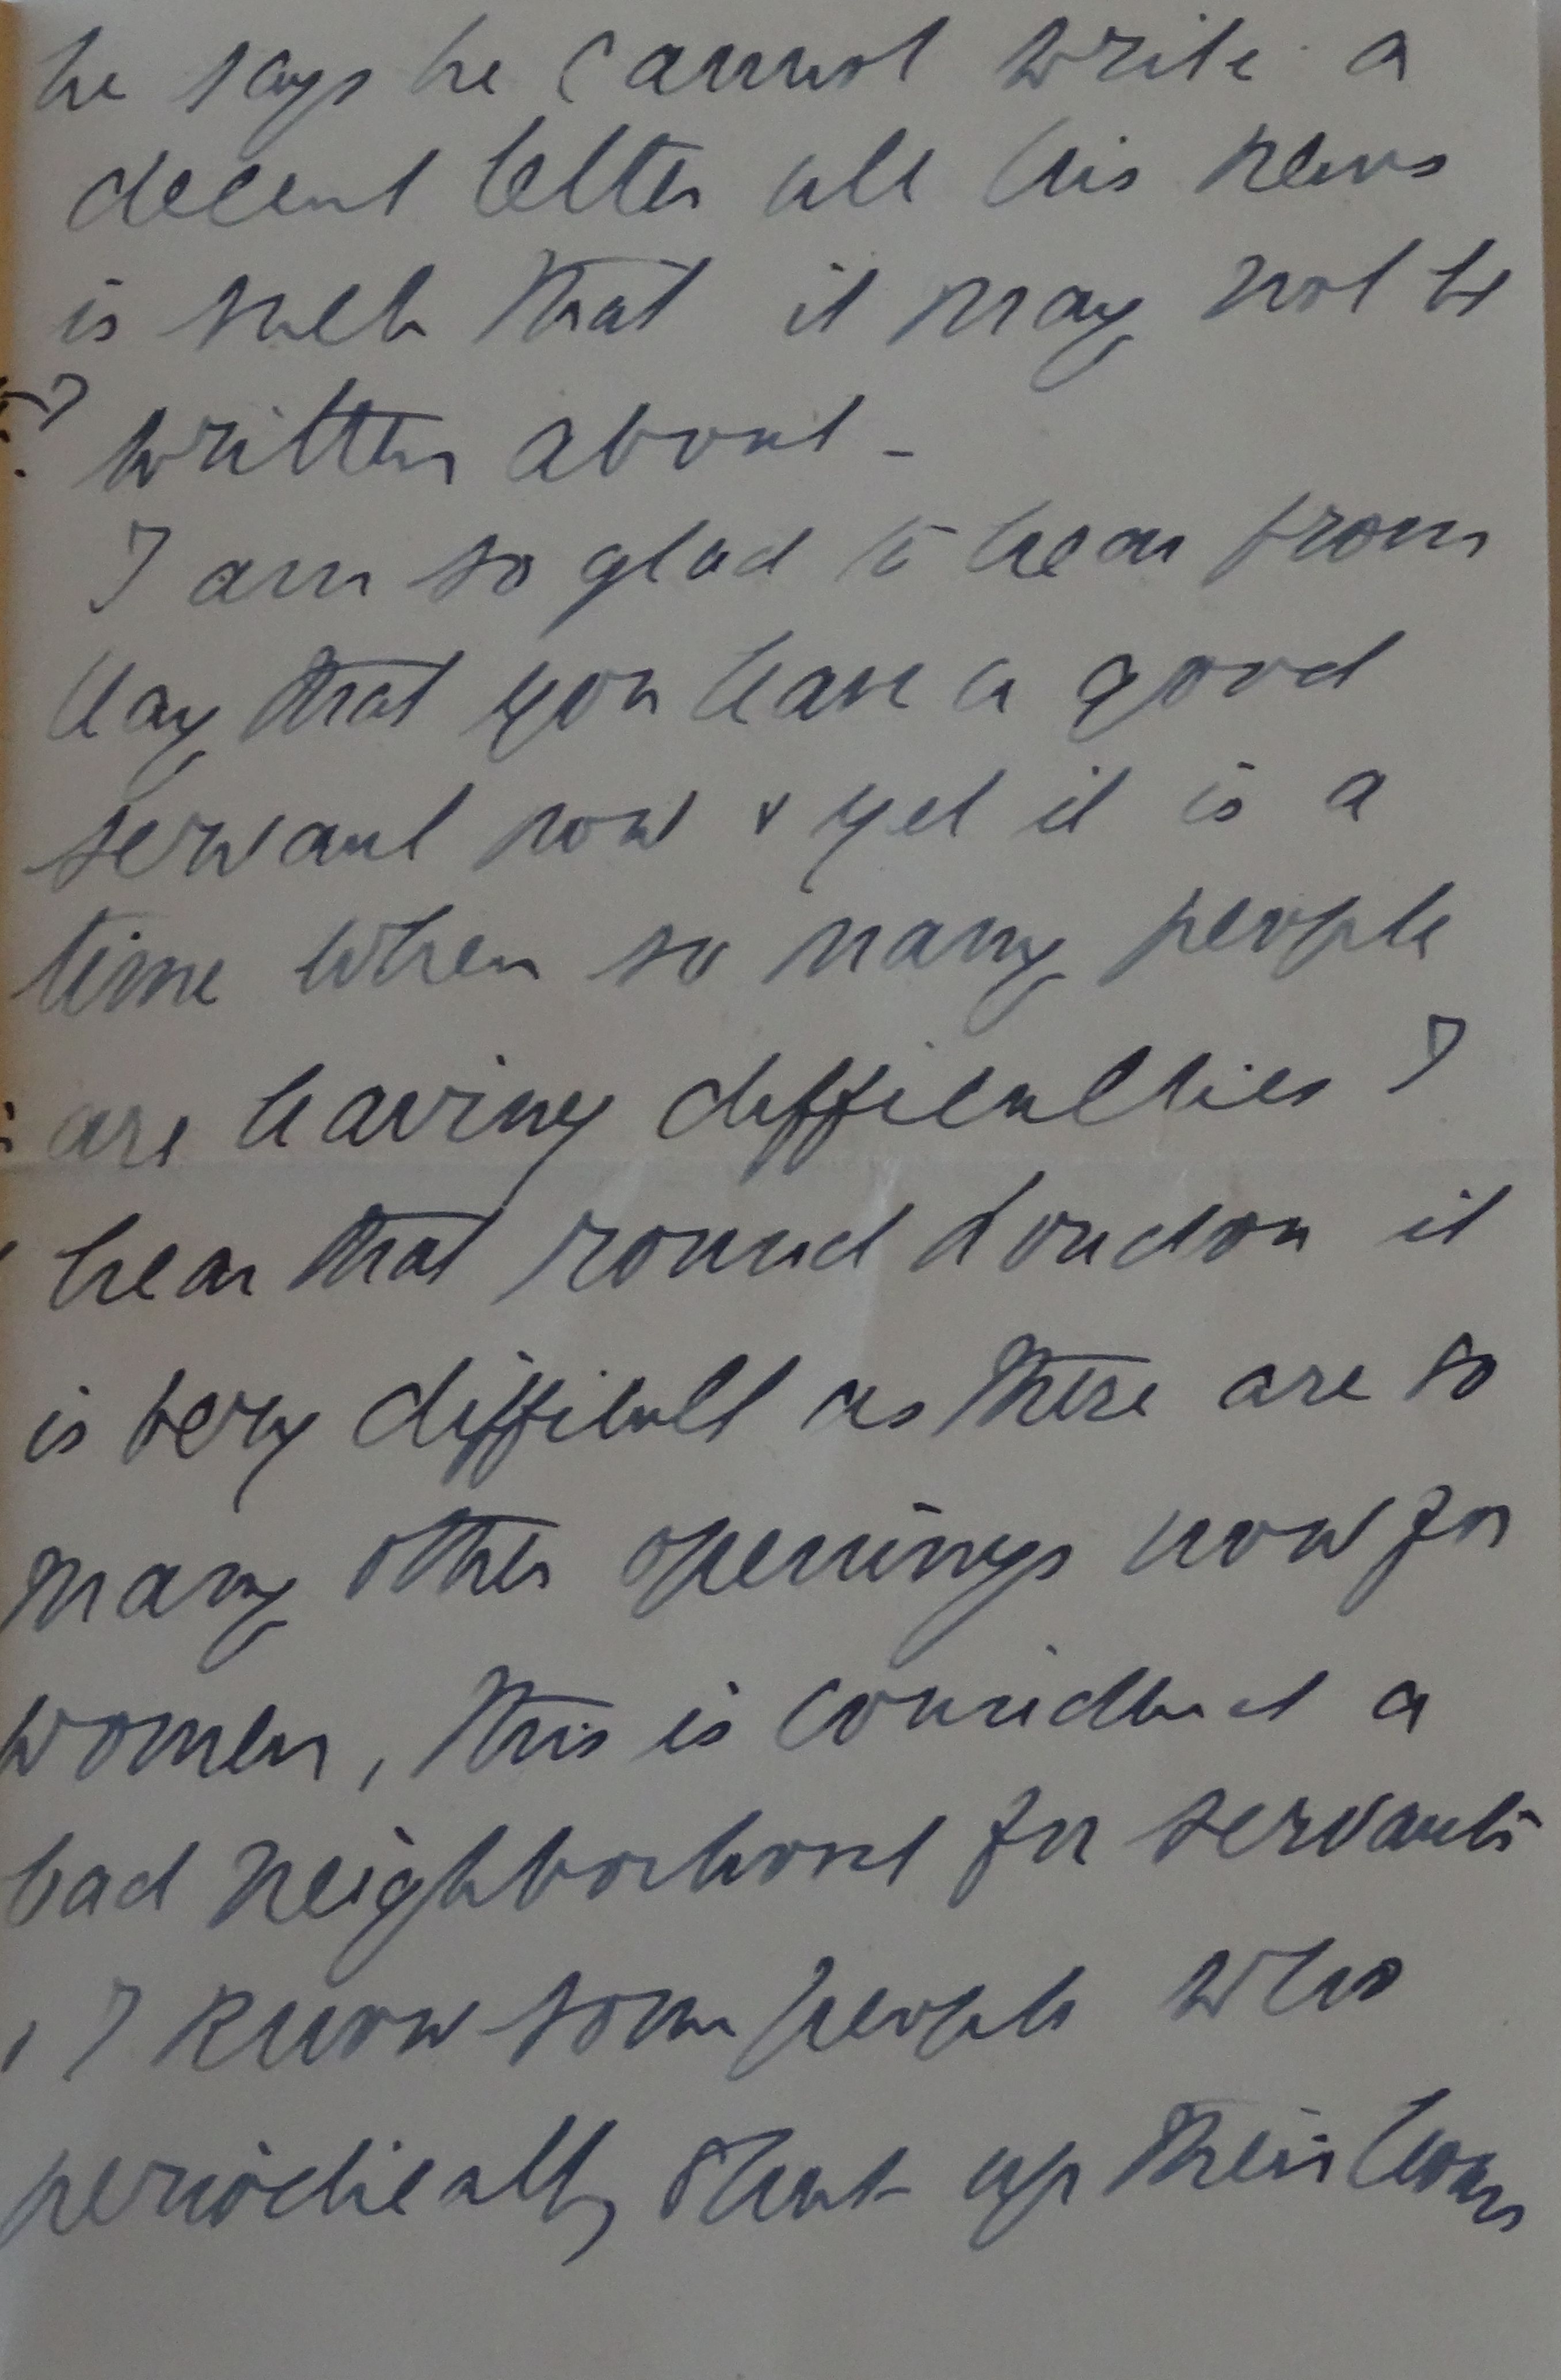 he says he cannot write a
decent letter all his news
is such that it may not be
written about -
I am so glad to hear from
Hay that you have a good
servant now & yet it is a
time when so many people
are having difficulties I
hear that round London it
is very difficult as there are so
many other openings now for
women, this is considered a
bad neighborhood for servants
, I know some people who
periodically shut up their house